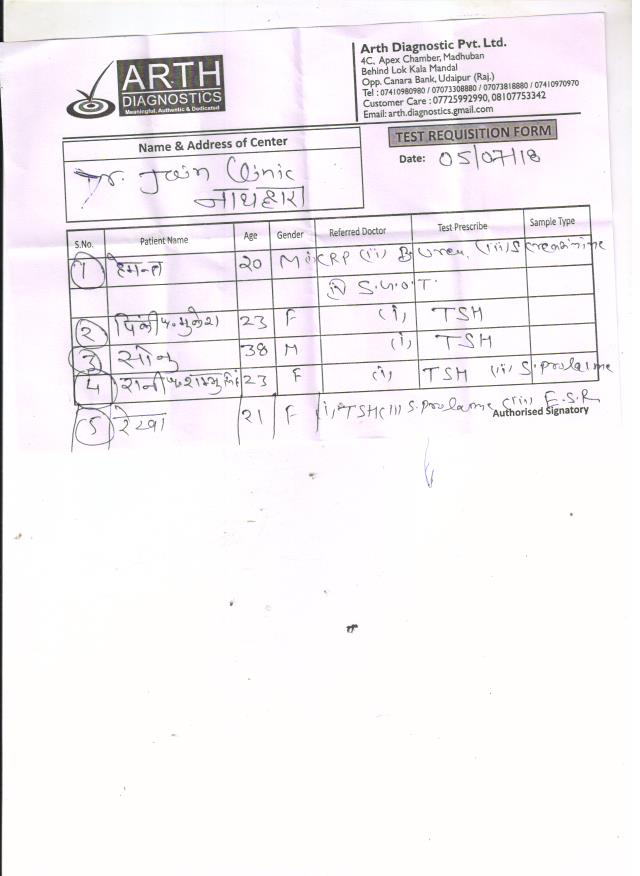 ARTH
DIAGNOSTICS
Meaningful, Authentic & Dedicated
Arth Diagnostic Pvt. Ltd.
4C, Apex Chamber, Madhuban
Behind Lok Kala Mandal
Opp. Canara Bank, Udaipur (Raj.)
Tel : 07410980980 / 07073308880 / 07073818880 / 07410970970
Customer Care : 07725992990, 08107753342
Email: arth.diagnostics.gmail.com
Name & Address of Center
Dr. Jain Clinic
नाथद्वारा
TEST REQUISITION FORM
Date: 05/07/18
S.No. Patient Name Age Gender Referred Doctor Test Prescribe Sample Type
1 हेमन्त 20 M (i) CRP (ii) B. Urea (iii) S creatinine
(iv) S.G.O.T.
2 पिंकी 23 F (i) TSH
3 सोनु 38 M (i) TSH
4 रानी 23 F (i) TSH (ii) S.
5 रेखा 21 F (i) TSH (ii) S. (iii) E.S.R
Authorised Signatory